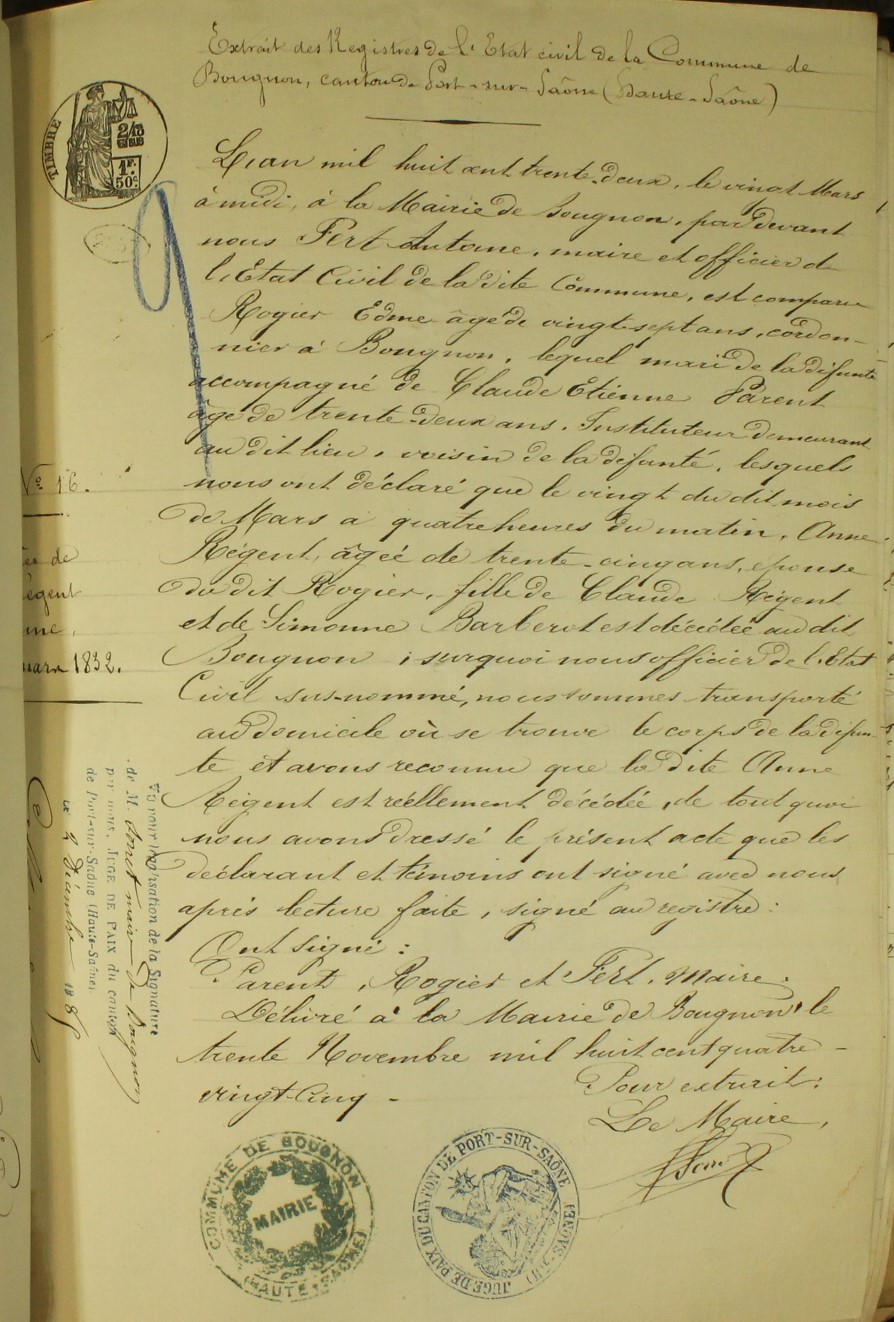 Extrait des Registres de l'Etat civil de la Commune de
Bougnon, canton de Port-sur-Saône (Haute-Saône)
TIMBRE
2/10
EN SUS
1F.
50c
L'an mil huit cent trente-deux, le vingt Mars
à midi, à la Mairie de Bougnon, par devant
nous Fert Antoine, maire et officier de
l'Etat Civil de la dite Commune, est comparu
Rogier Edme âgé de vingt-sept ans, cordon-
nier à Bougnon, lequel mari de la difunte
accompagné de Claude Etienne Parent
âgé de trente-deux ans, Instituteur demeurant
au dit lieu, voisin de la difunté, lesquels
nous ont déclaré que le vingt du dit mois
de Mars à quatre heures du matin, Anne
Régent, âgée de trente-cinq ans, epouse
du dit Rogier, fille de Claude Régent
et de Simonne Barberot est décédée au dit
Bougnon ; surquoi nous officier de l'Etat
Civil sus-nommé, nous sommes transporté
au domicile où se trouve le corps de la difun-
te et avons reconnu que la dite Anne
Régent est réellement décédée, de tout quoi
nous avons dressé le présent acte que les
déclarant et témoins ont signé avec nous
après lecture faite, signé au registre :
Ont signé :
Parent, Rogier et Fert, Maire.
Délivré à la Mairie de Bougnon, le
trente Novembre mil huit cent quatre-
vingt-cinq -
Pour extrait :
Le Maire,
No 16.
de
égent
ne,
mars 1832.
Vu pour légalisation de la Signature
de M. maire de Bougnon
par nous, JUGE DE PAIX du canton
de Port-sur-Saône (Haute-Saône)
Le 2 Décembre 188
COMMUNE DE BOUGNON
MAIRIE
(HAUTE-SAÔNE)
JUGE DE PAIX DU CANTON DE PORT-SUR-SAÔNE
(HTE-SAONE)